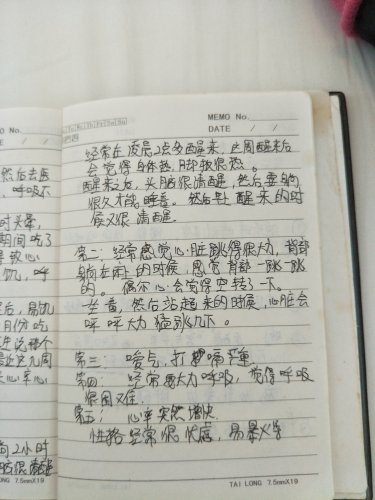 MEMO No.
DATE / /
经常在凌晨2点多醒来,此周醒来后
会觉得身体热,脚很热。
醒来之后,头脑很清醒,然后要躺
很久才能睡着。然后早上醒来的时
候又很清醒。
第二:经常感觉心脏跳得很大力,背部
躺在床上的时候,感觉背部一跳一跳
的。偶尔心会觉得空转了一下。
坐着,然后站起来的时候,心脏会
呯呯大力猛跳几下。
第三:嗳气,打嗝严重
第四:经常要大力呼吸,觉得呼吸
很困难。
第五:心率突然增快
性格经常很忧虑,易暴火
TAI LONG 7.5mmX19
MEMO No.
DATE / /
然后去医
呼吸不
时头晕,
期间吃了
心
饥,呼
后,易饥
月份吃
生说
最近这几周
心率
2小时
7.5mmX19